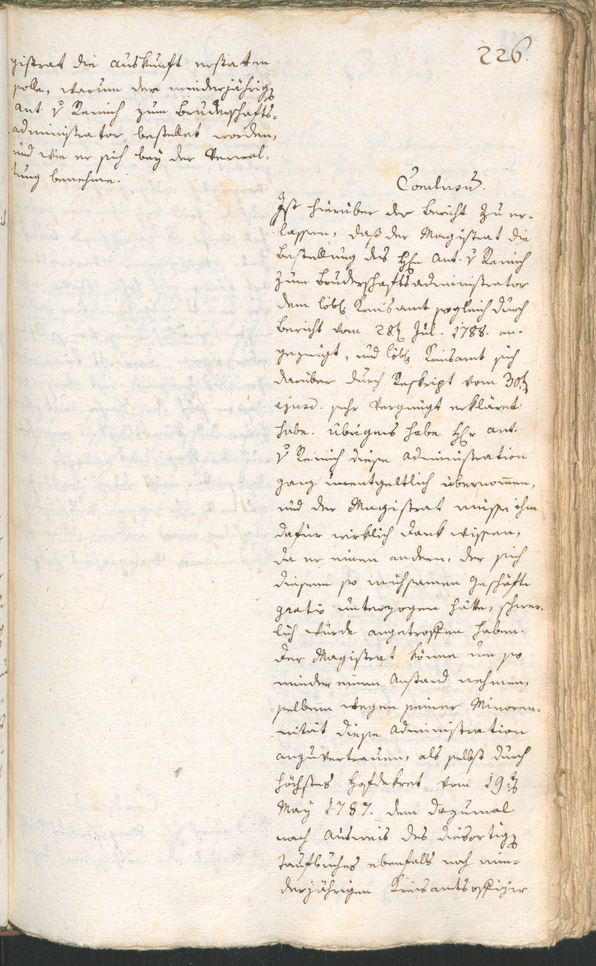 226.
gistrat die Auskunft erstatten
solle, warum der minderjährige
Ant. v Remich zum Bruderschafts-
administrator bestellet worden,
und wie er sich bey der Verwal-
tung benehme.
Conclusum.
Ist hierüber der Bericht zu er-
lassen, daß der Magistrat die
Bestellung des H. Ant. v Remich
zum Bruderschaftsadministrator
dem löbl. Kreisamt sogleich durch
Bericht vom 28t. Jul. 1788. an-
gezeigt, und löbl. Kreisamt sich
darüber durch Reskript vom 30t.
ejusd. sehr vergnügt erkläret
habe. Übrigens habe Hr. Ant.
v Remich diese Administration
ganz unentgeltlich übernommen,
und der Magistrat müsse ihm
dafür wirklich Dank wissen,
da er einen andern, der sich
diesem so mühsamen Geschäfte
gratis unterzogen hätte, schwer-
lich würde angetroffen haben.
Der Magistrat könne um so
minder einen Anstand nehmen,
selbem wegen seiner Minoren-
nität diese Administration
anzuvertrauen, als selbst durch
höchstes Hofdekret vom 19.t
May 1787. dem dazumal
nach Ausweis des diesortigen
Taufbuches ebenfalls noch min-
derjährigen Kreisamtsoffizier